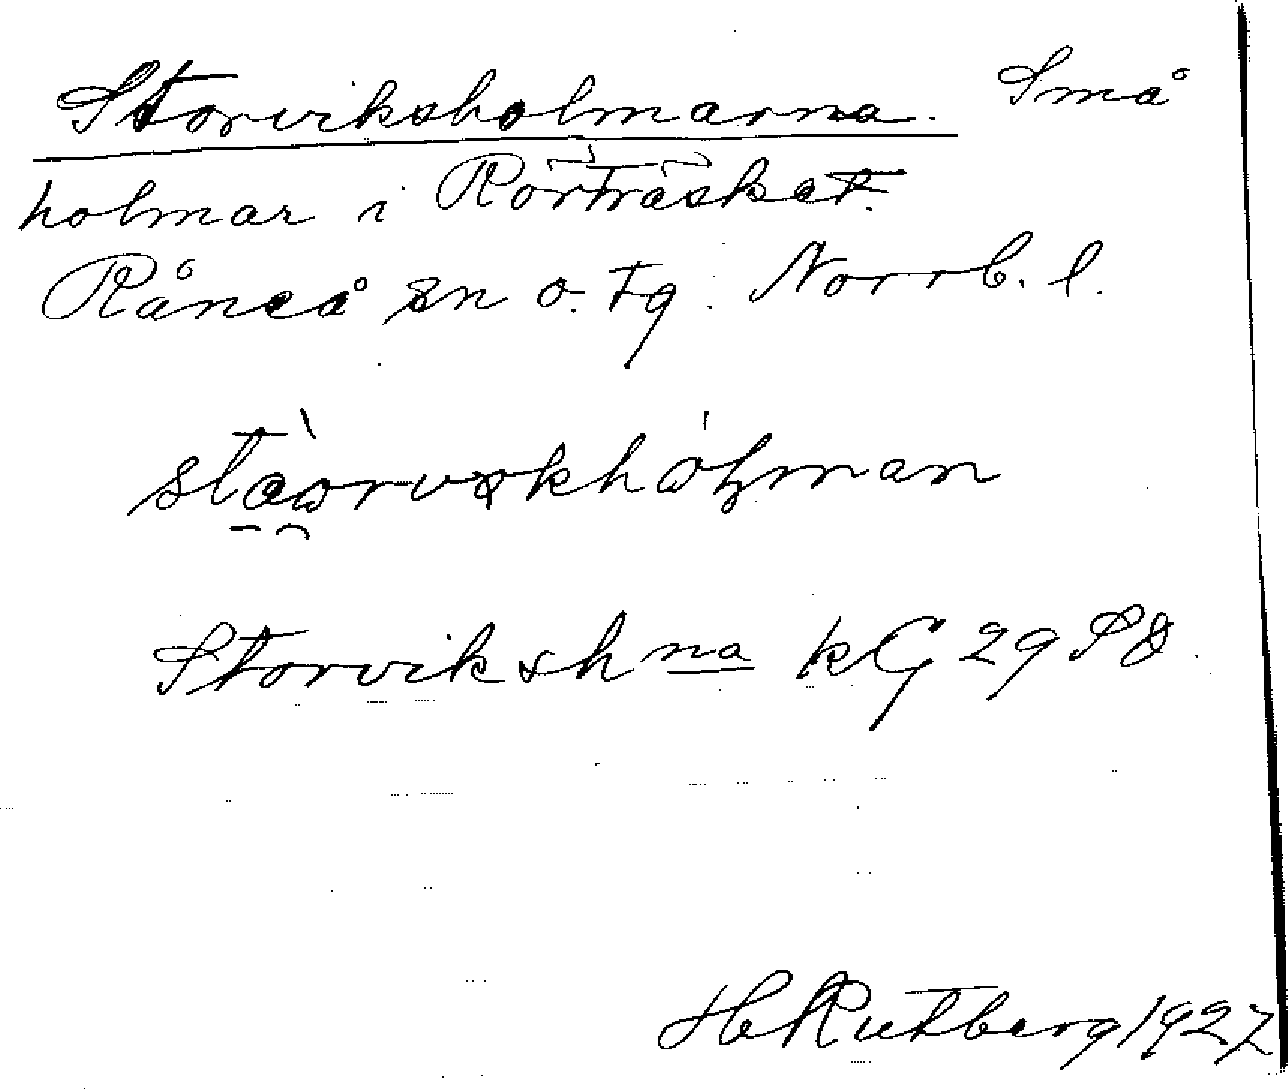 Storviksholmarna. Små
holmar i Rörträsket.
Råneå sn o. tg. Norrb. l.
Storviksh na kG 29 SO
H Rutberg 1927